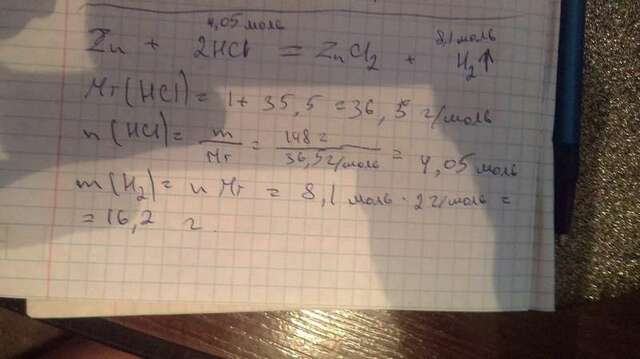 4,05 моль 8,1 моль
Zn + 2HCl = ZnCl2 + H2↑
Mr(HCl) = 1 + 35,5 = 36,5 г/моль
n(HCl) = m/Mr = 148 г/36,5 г/моль = 4,05 моль
m(H2) = n Mr = 8,1 моль · 2 г/моль =
= 16,2 г.